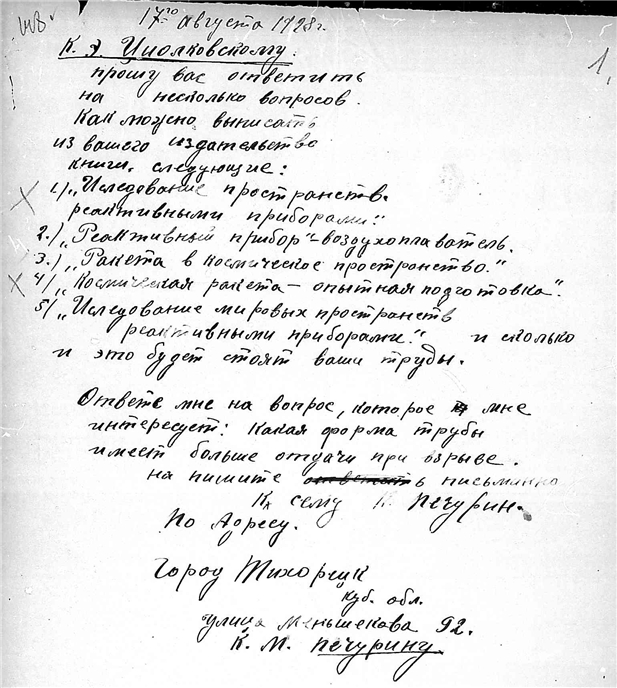 17го августа 1928г.
1.
К. Э. Циолковскому.
прошу вас ответить
на несколько вопросов.
Как можно выписать
из вашего издательство
книги, следующие:
1) „Иследование пространств.
реактивными приборами."
2.) „Реактивный прибор"–воздухоплаватель.
3.) „Ракета в космическое пространство."
4) „Космическая ракета – опытная подготовка".
5) „Иследование мировых пространств
реактивными приборами." и сколько
и это будет стоят ваши труды.
Ответе мне на вопрос, которое мне
интересует: Какая форма трубы
имеет больше отдачи при взрыве.
на пишите письменно
К сему К. Печурин.
По Адресу.
Город Тихорецк
Куб. обл.
улица Меньшекова 92.
К. М. Печурину.